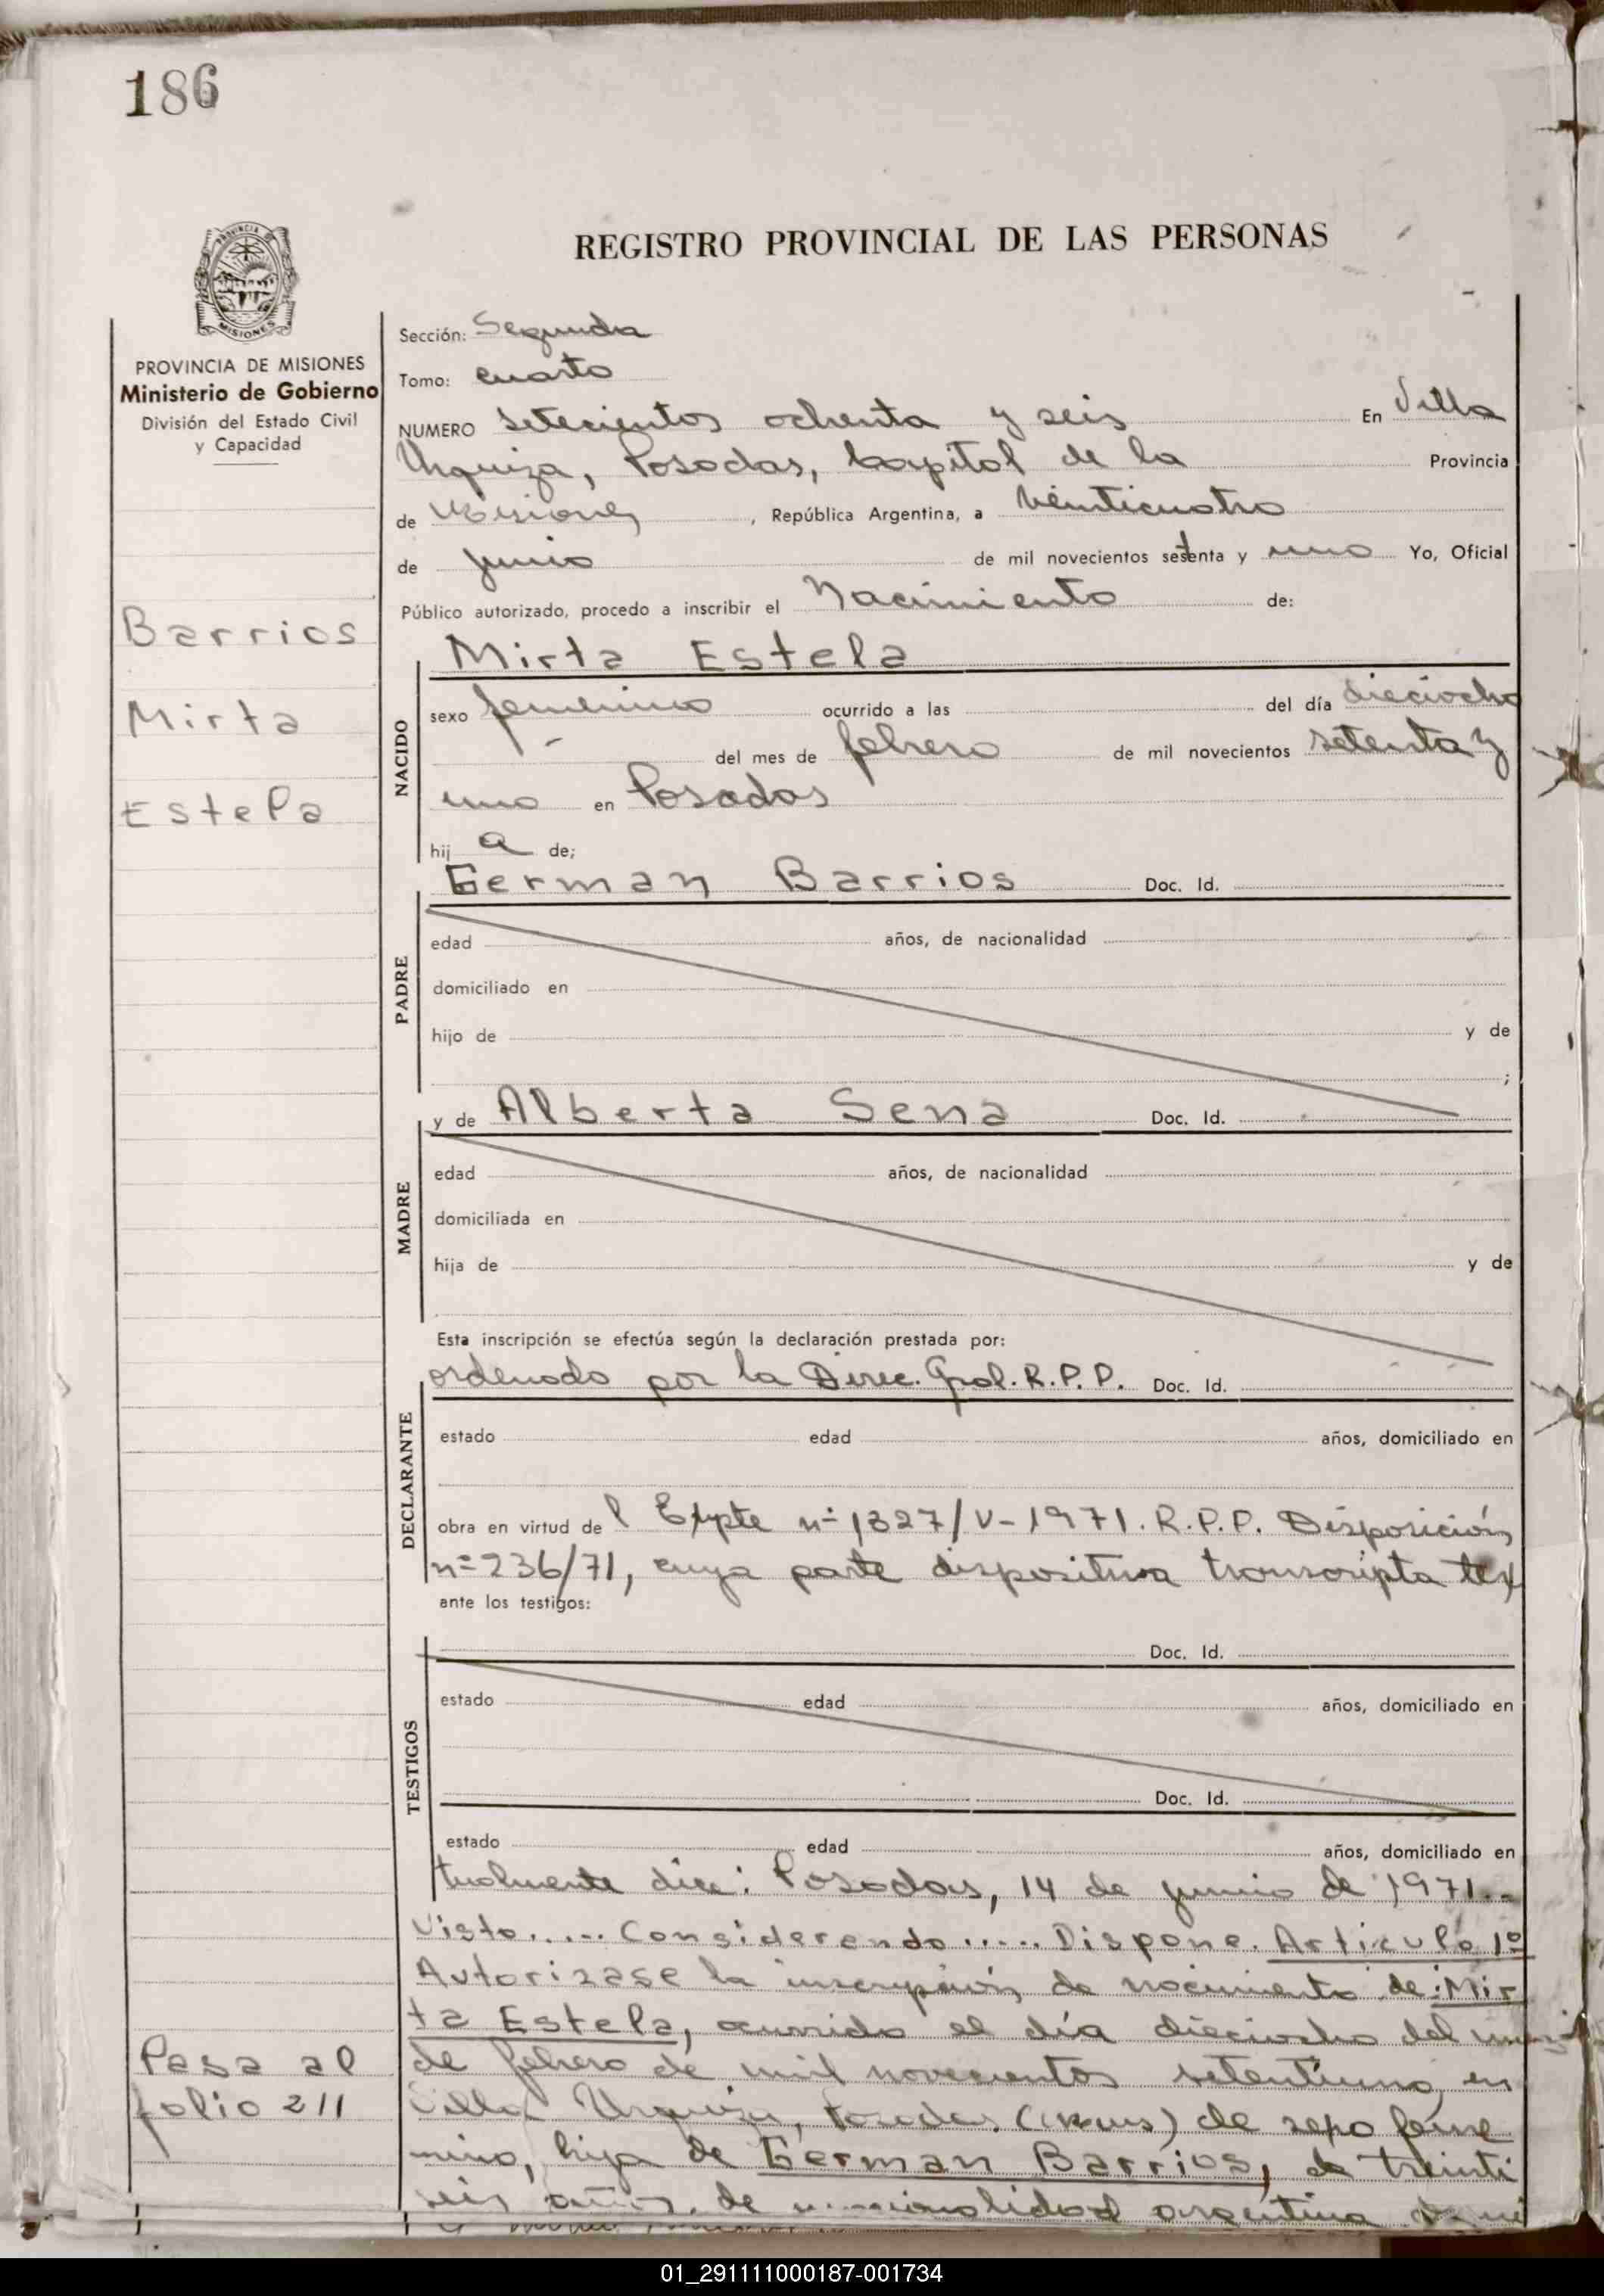 186
REGISTRO PROVINCIAL DE LAS PERSONAS
PROVINCIA DE MISIONES
Ministerio de Gobierno
División del Estado Civil
y Capacidad
Barrios
Mirta
Estela
Pasa al
folio 211
Sección: Segunda
Tomo: cuarto
NUMERO setecientos ochenta y seis En Villa
Urquiza, Posadas, Capital de la Provincia
de Misiones, República Argentina, a veinticuatro
de junio de mil novecientos setenta y uno Yo, Oficial
Público autorizado, procedo a inscribir el Nacimiento de:
Mirta Estela
NACIDO
sexo femenino ocurrido a las del día dieciocho
- del mes de febrero de mil novecientos setenta y
uno en Posadas
hij a de;
German Barrios Doc. Id.
PADRE
edad años, de nacionalidad
domiciliado en
hijo de y de
;
y de Alberta Sena Doc. Id.
MADRE
edad años, de nacionalidad
domiciliada en
hija de y de
Esta inscripción se efectúa según la declaración prestada por:
ordenado por la Direc. Gral. R.P.P. Doc. Id.
DECLARANTE
estado edad años, domiciliado en
obra en virtud de l Expte nº 1327/V-1971. R.P.P. Disposición
nº 236/71, cuya parte dispositiva transcripta tex
ante los testigos:
Doc. Id.
TESTIGOS
estado edad años, domiciliado en
Doc. Id.
estado edad años, domiciliado en
tualmente dice: Posadas, 14 de junio de 1971.-
Visto..... Considerendo..... Dispone. Articulo 1º
Autorizase la inscripción de nacimiento de: Mir
ta Estela, ocurrido el día dieciocho del mes
de febrero de mil novecientos setentiuno, en
Villa Urquiza, Posadas (Mnes) de sexo feme
nino, hija de German Barrios, de treinti
seis años, de nacionalidad argentina
01_291111000187-001734